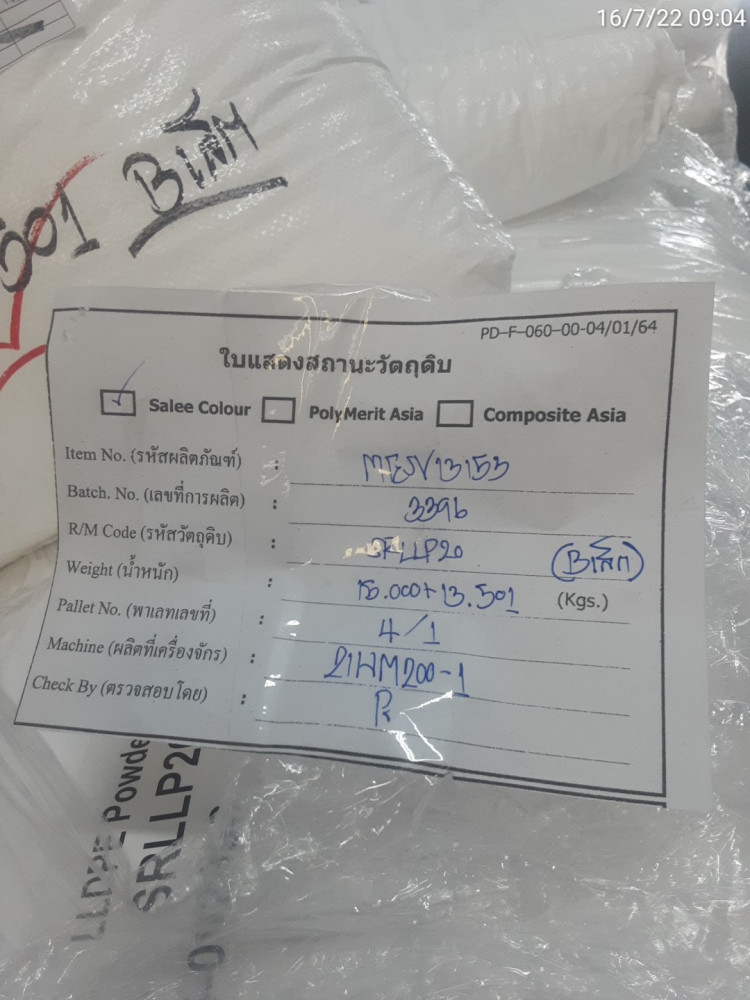 16/7/22 09:04
501 Bเศษ
PD-F-060-00-04/01/64
ใบแสดงสถานะวัตถุดิบ
Salee Colour PolyMerit Asia Composite Asia
Item No. (รหัสผลิตภัณฑ์) :
Batch. No. (เลขที่การผลิต) : 3396
R/M Code (รหัสวัตถุดิบ) : SRLLP20 (Bเศษ)
Weight (น้ำหนัก) : 15.000+13.501 (Kgs.)
Pallet No. (พาเลทเลขที่) : 4/1
Machine (ผลิตที่เครื่องจักร) : 21HM200-1
Check By (ตรวจสอบโดย) :
LLDPE Powder
SRLLP20